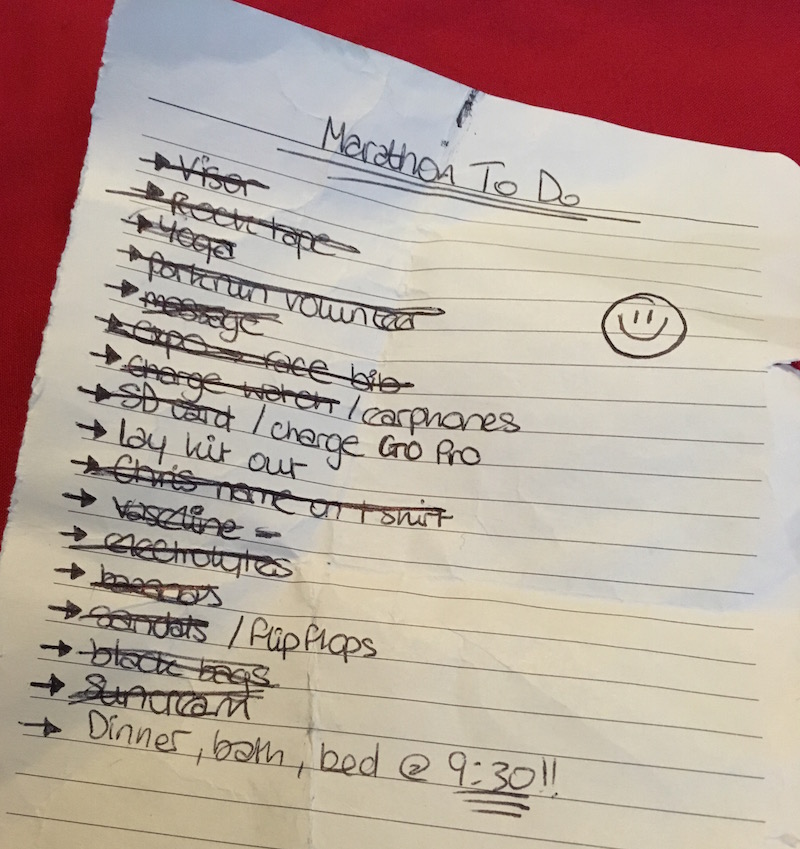 Marathon To Do
→ Visor
→ Rock tape
→ Yoga
→ parkrun volunteer
→ message
→ expo → race bib
→ charge watch / earphones
→ SD card / charge GO Pro
→ lay kit out
→ Chris name on t shirt
→ vaseline -
→ electrolytes
→ bananas
→ sandals / flipflops
→ black bags
→ Suncream
→ Dinner, bath, bed @ 9:30!!